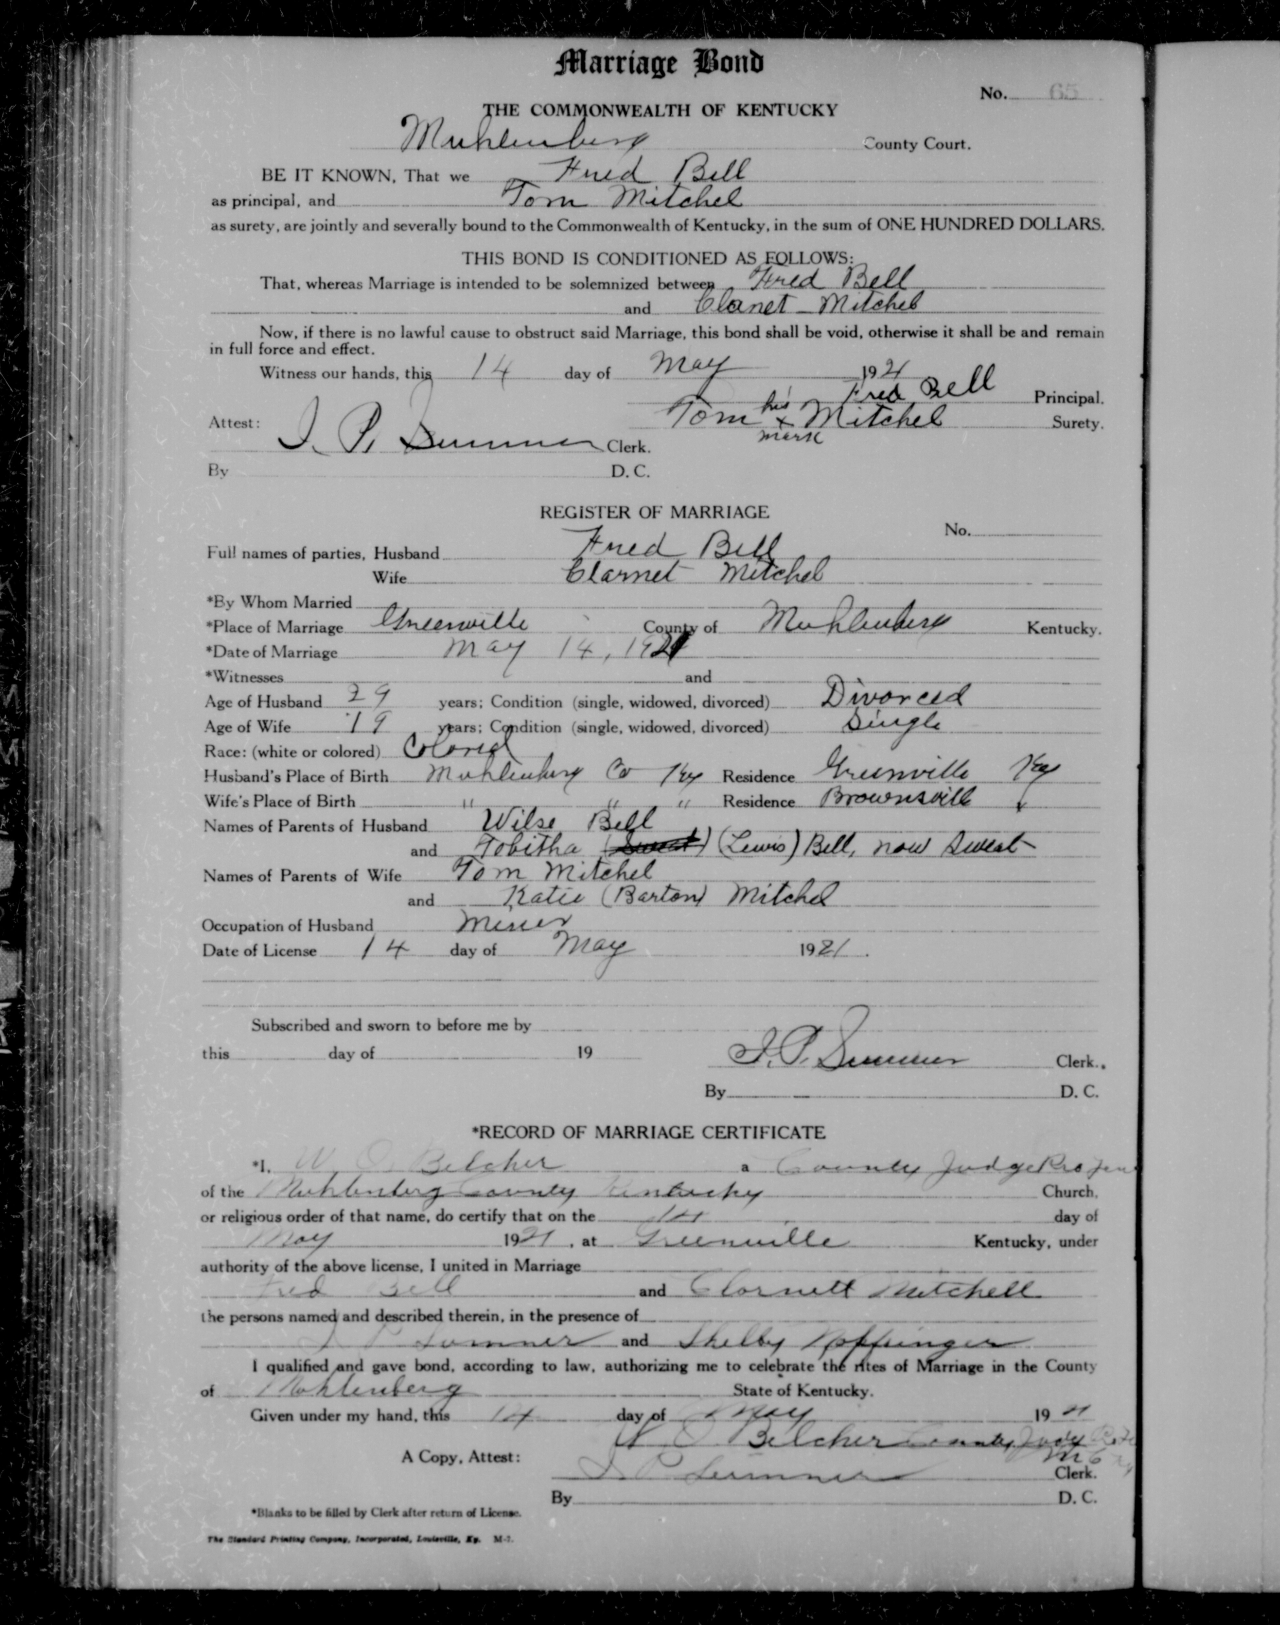 Marriage Bond
No. 65
THE COMMONWEALTH OF KENTUCKY
Muhlenberg County Court.
BE IT KNOWN, That we Fred Bell
as principal, and Tom Mitchel
as surety, are jointly and severally bound to the Commonwealth of Kentucky, in the sum of ONE HUNDRED DOLLARS.
THIS BOND IS CONDITIONED AS FOLLOWS:
That, whereas Marriage is intended to be solemnized between Fred Bell
and Claret Mitchel
Now, if there is no lawful cause to obstruct said Marriage, this bond shall be void, otherwise it shall be and remain
in full force and effect.
Witness our hands, this 14 day of May 1921
Fred Bell Principal.
Attest: Tom his x mark Mitchel Surety.
J. P. Summer Clerk.
By D. C.
REGISTER OF MARRIAGE
No.
Full names of parties, Husband Fred Bell
Wife Clarnet Mitchel
*By Whom Married
*Place of Marriage Greenville County of Muhlenberg Kentucky.
*Date of Marriage May 14, 1921
*Witnesses and
Age of Husband 29 years; Condition (single, widowed, divorced) Divorced
Age of Wife 19 years; Condition (single, widowed, divorced) Single
Race: (white or colored) Colored
Husband's Place of Birth Muhlenberg Co Ky Residence Greenville Ky
Wife's Place of Birth " " " Residence Brownsville "
Names of Parents of Husband Wilse Bell
and Tobitha (Lewis) Bell, now Sweat
Names of Parents of Wife Tom Mitchel
and Katie (Barton) Mitchel
Occupation of Husband Miner
Date of License 14 day of May 1921.
Subscribed and sworn to before me by
this day of 19 J. P. Summer Clerk.
By D. C.
*RECORD OF MARRIAGE CERTIFICATE
*I, W O Belcher a County Judge Pro Tem
of the Muhlenberg County Kentucky Church,
or religious order of that name, do certify that on the 14 day of
May 1921, at Greenville Kentucky, under
authority of the above license, I united in Marriage
Fred Bell and Clarnett Mitchell
the persons named and described therein, in the presence of
J P Summer and Shelby Noffsinger
I qualified and gave bond, according to law, authorizing me to celebrate the rites of Marriage in the County
of Muhlenberg State of Kentucky.
Given under my hand, this 14 day of May 1921
W O Belcher County Judge
A Copy, Attest: J P Summer Clerk.
By D. C.
*Blanks to be filled by Clerk after return of License.
The Standard Printing Company, Incorporated, Louisville, Ky. M-7.